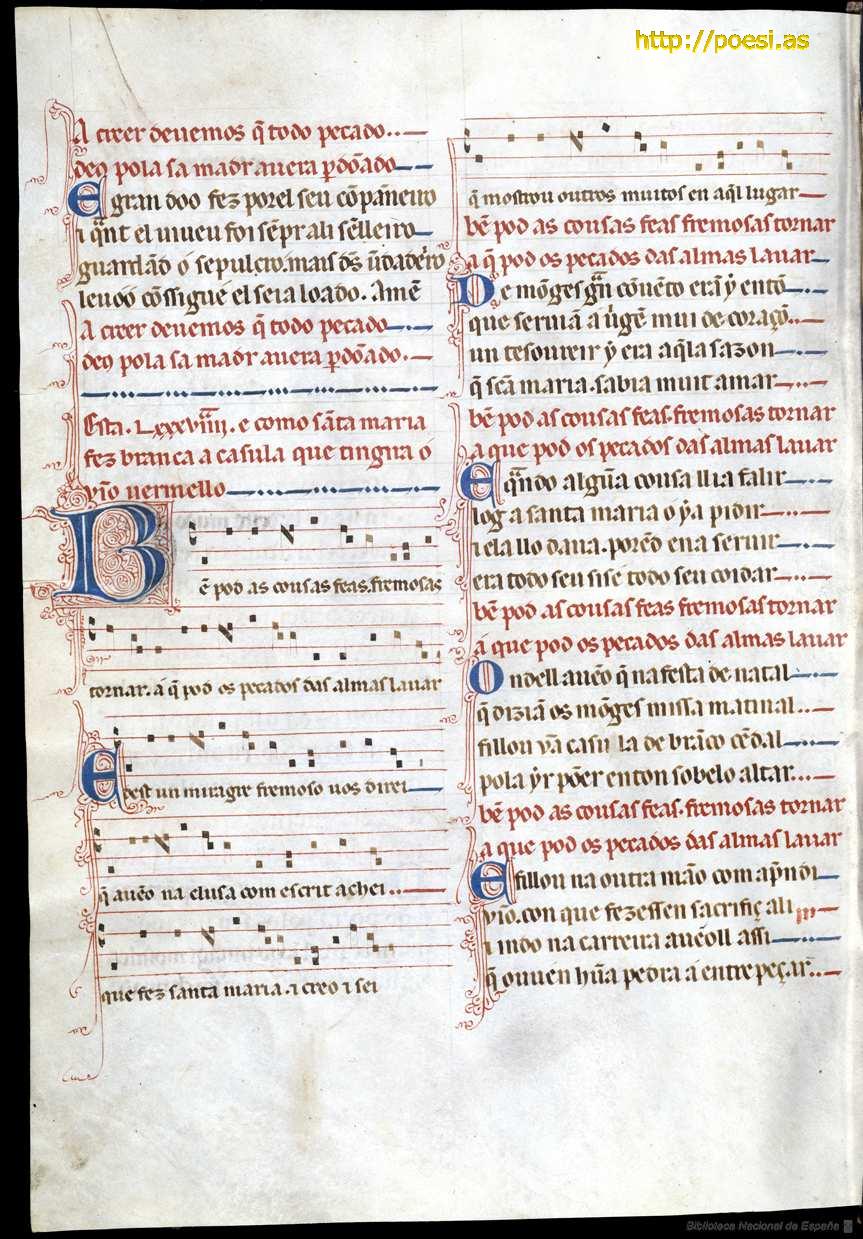 http://poesi.as
A creer deuemos q̃ todo pecado
deꝯ pola sa madr auera ꝑdõado
E gran doo fez por el seu cõpãneiro
⁊ q̃nt el uiueu foi sẽpr ali sẽlleiro
guardãd o sepulcro. mais d̃s ũdadeiro
leuóó cõssigue el seia loado. Amẽ
A creer deuemos q̃ todo pecado
deꝯ pola sa madr auera ꝑdõado.
Esta . Lxxxviiii . e como sãta maria
fez branca a casula que tingua ó
uỹo uermello
Bẽ pod as cousas feas. fremosas
tornar. á q̃ pod os pecados das almas lauar
E dest un miragre fremoso uos direi
q̃ auẽo na elusa com escrit achei ..
que fez santa maria. ⁊ creo ⁊ sei
q̃ mostrou outros muitos en aq̃l lugar
bẽ pod as cousas feas fremosas tornar
a q̃ pod os pecados das almas lauar
De mõges grã cõuẽto erã ẏ entõ
que seruiã a uirgẽ mui de coraçõ
un tesoureir ẏ era aq̃la sazon
q̃ scã maria. sabia muit amar
bẽ pod as cousas feas. fremosas tornar
a que pod os pecados das almas lauar
E quãdo algũa cousa llia falir
log a santa maria o ẏa pidir
⁊ ela llo daua. porẽd en a seruir
era todo seu sis e todo seu coidar
bẽ pod as cousas feas fremosas tornar
á que pod os pecados das almas lauar
Ond ell auẽo q̃ na festa de natal
q̃ diziã os mõges missa matinal ..
fillou ũa casula de brãco cẽdal
pola ẏr põer enton sobelo altar ..
bẽ pod as cousas feas. fremosas tornar
a que pod os pecados das almas lauar
E fillou na outra mão com apr̃ndi
uỹo. con que fezessen sacrifiç ali
⁊ indo na carreira auẽoll assi
q̃ ouu en hũa pedra á entrepeçar ..
Biblioteca Nacional de España